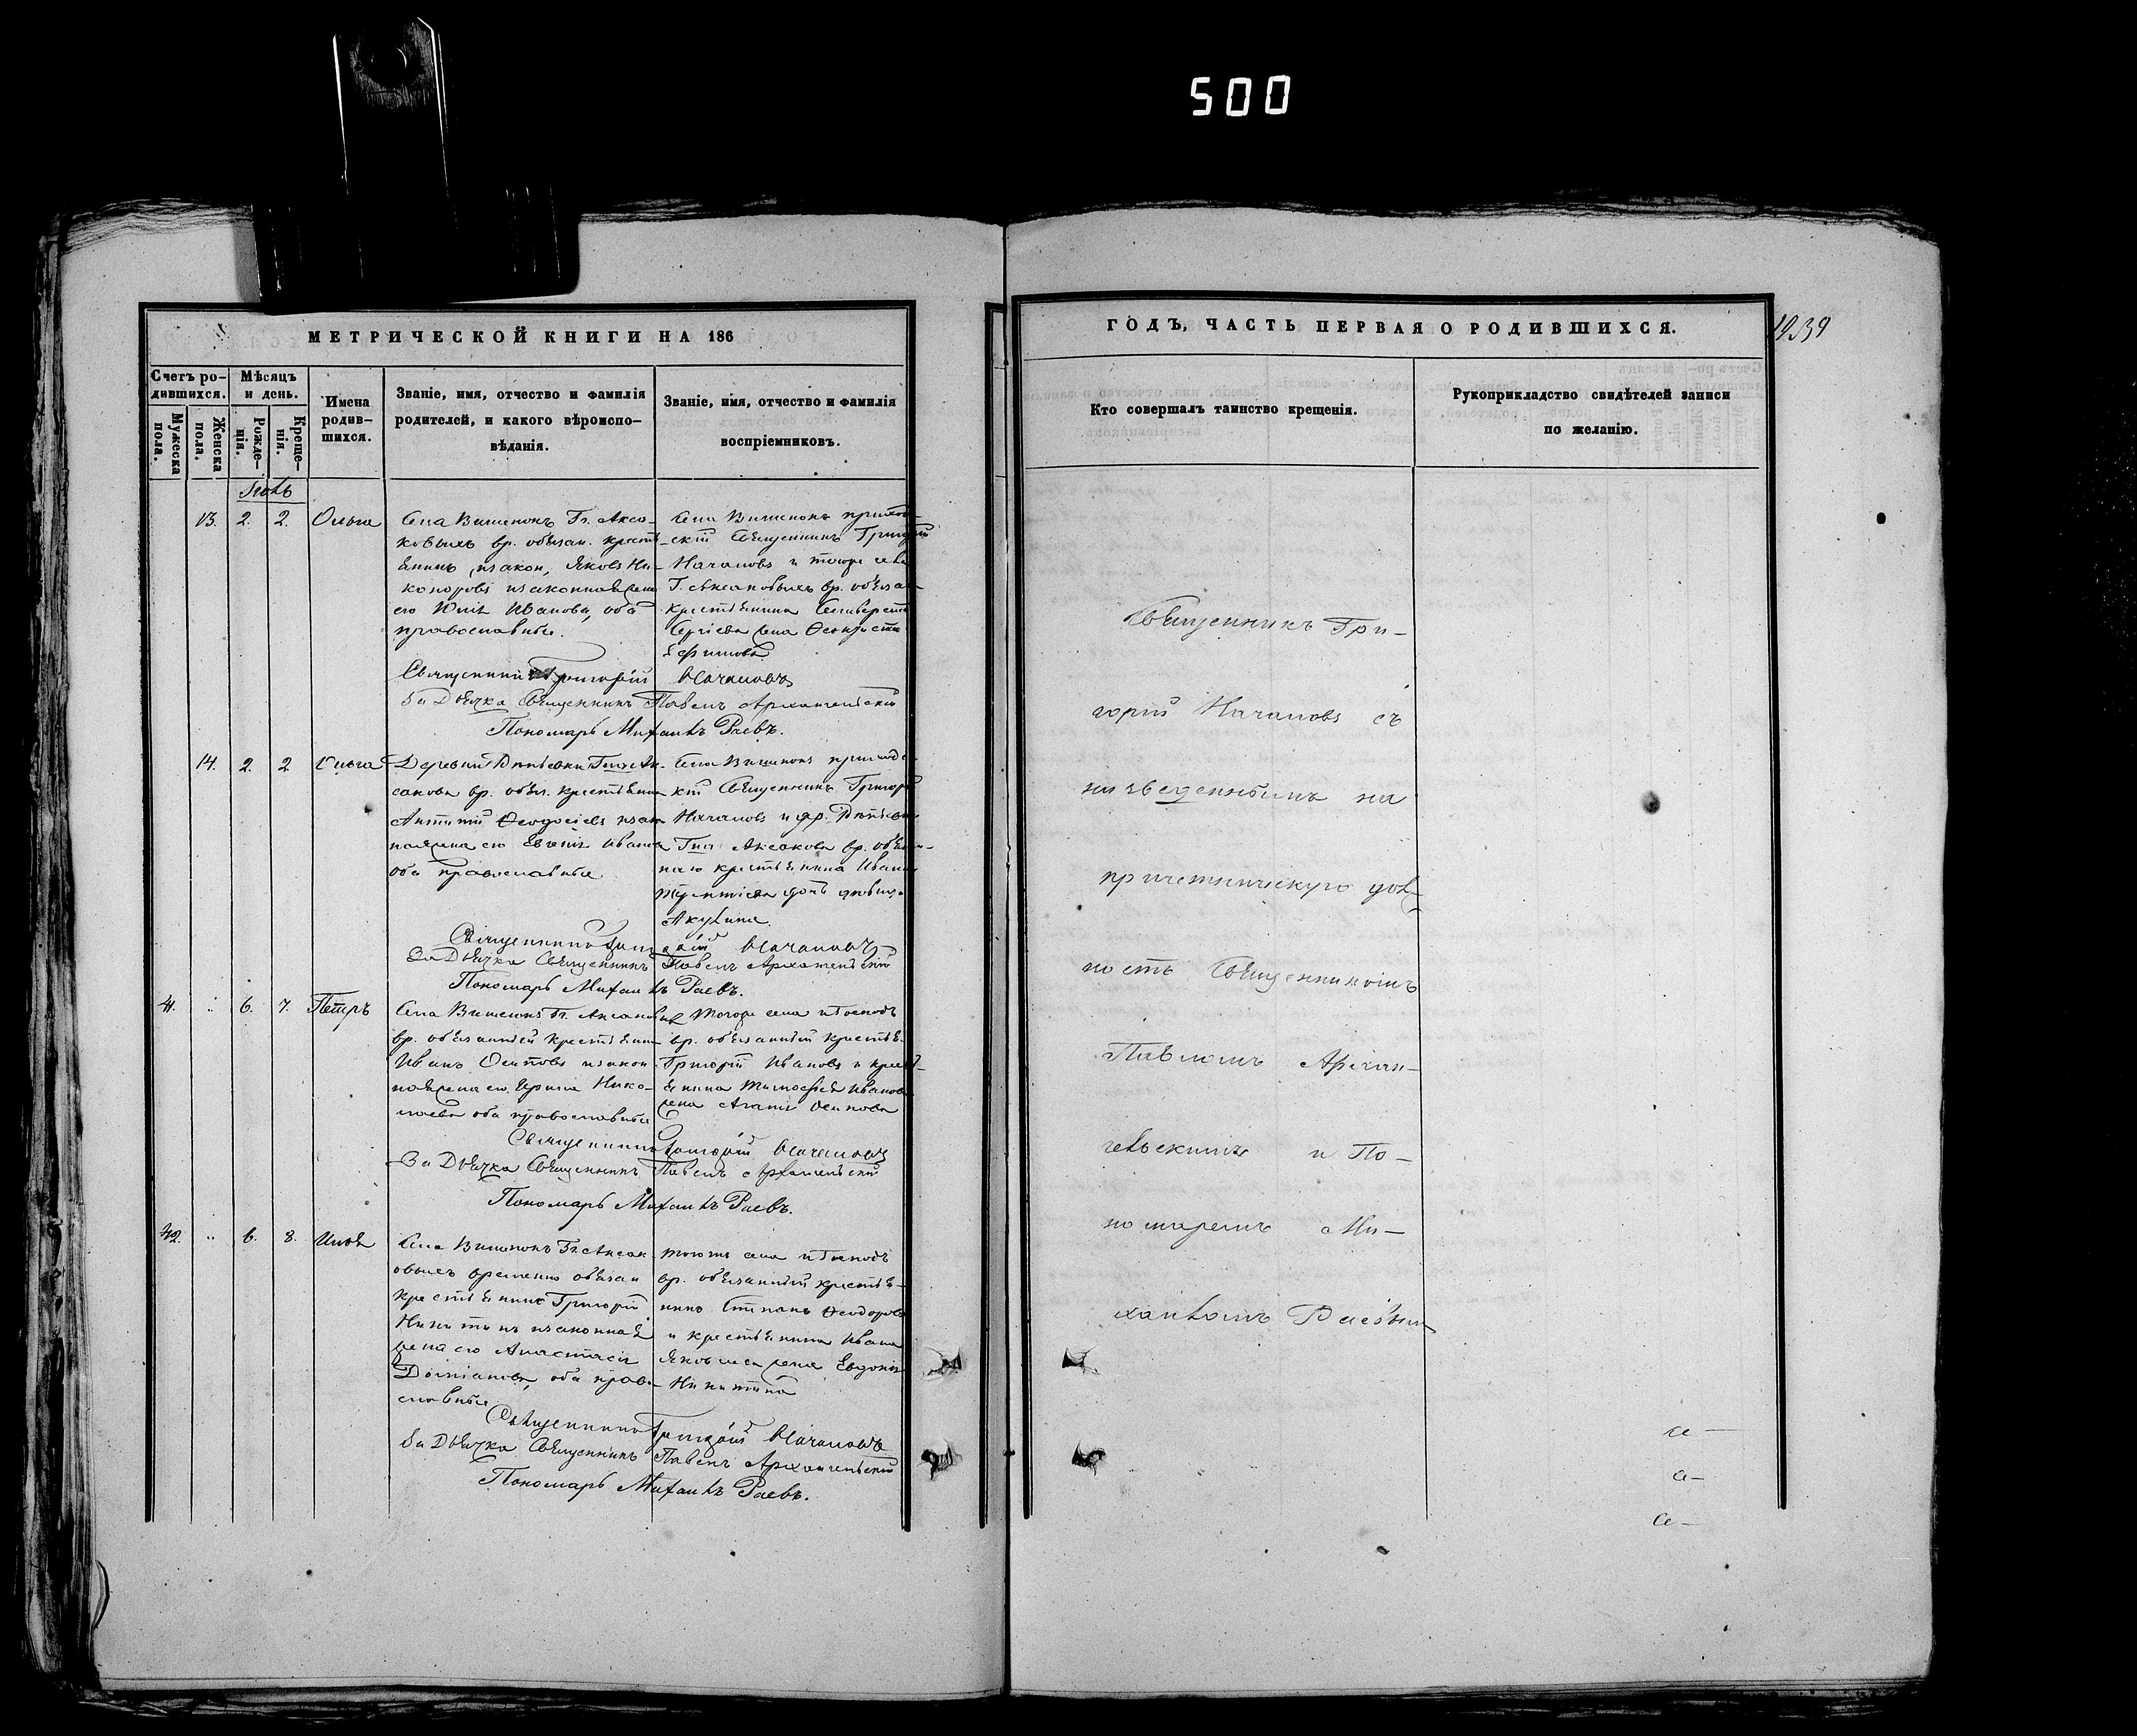 500
МЕТРИЧЕСКОЙ КНИГИ НА 186
ГОДЪ, ЧАСТЬ ПЕРВАЯ О РОДИВШИХСЯ.
Счетъ ро-
дившихся.
Мужеска
пола.
Женска
пола.
Мѣсяцъ
и день.
Рожде-
нія.
Креще-
нія.
Имена
родив-
шихся.
Званіе, имя, отчество и фамилія
родителей, и какого вѣроиспо-
вѣданія.
Званіе, имя, отчество и фамилія
воспріемниковъ.
Кто совершалъ таинство крещенія.
Рукоприкладство свидѣтелей записи
по желанію.
13. 2. 2. Ольга
Села Вишенокъ Гг. Акса-
ковыхъ вр. обязан. крестья-
нинъ Яковъ Ни-
каноровъ и законная жена
его Юлія Иванова, оба
православные.
Села Вишенокъ приход-
скій Священникъ Григорій
Началовъ и того же села
Гг. Аксаковыхъ вр. обяза-
крестьянина Селиверста
Сергіева жена
Ефимова
Священникъ Григорій Началовъ
За Дьячка Священникъ Павелъ Архангельскій
Пономарь Михаилъ Раевъ.
14. 2. 2 Ольга
Деревни Ак-
сакова вр. обяз. крестьянинъ
Антипъ Ѳеодосіевъ и закон
ная жена его Евгенія Иванова
оба православные
Села Вишенокъ приходс-
кій Священникъ Григорій
Началовъ и др.
Аксакова вр. обязан-
наго крестьянина Ивана
дочь дѣвица
Акулина
Священникъ Григорій Началовъ
За Дьячка Священникъ Павелъ Архангельскій
Пономарь Михаилъ Раевъ.
41. 6. 7. Петръ
Села Вишенокъ Гг. Аксаковыхъ
вр. обязанный крестьянинъ
Иванъ Осиповъ и закон
ная жена его Ирина Нико-
лаева оба православные
Того же села и Господъ
вр. обязанный крестья-
Григорій Ивановъ и крест-
янина Тимоѳея Иванова
жена Агапія Осипова
Священникъ Григорій Началовъ
За Дьячка Священникъ Павелъ Архангельскій
Пономарь Михаилъ Раевъ.
42. 6. 8. Илья
Села Вишенокъ Гг. Аксак
овыхъ временно обязан
крестьянинъ Григорій
Никитинъ и законная
жена его Анастасія
Даміанова, оба право-
славные
того же села и Господъ
вр. обязанный крестья-
нинъ Степанъ Ѳеодоровъ
и крестьянина Ивана
Яковлева жена Евдокія
Никитина
Священникъ Григорій Началовъ
За Дьячка Священникъ Павелъ Архангельскій
Пономарь Михаилъ Раевъ.
Священникъ Гри-
горій Началовъ съ
низведеннымъ на
причетническую долж-
ность Священникомъ
Павломъ Архан-
гельскимъ и По-
номаремъ Ми-
хаиломъ Раевымъ